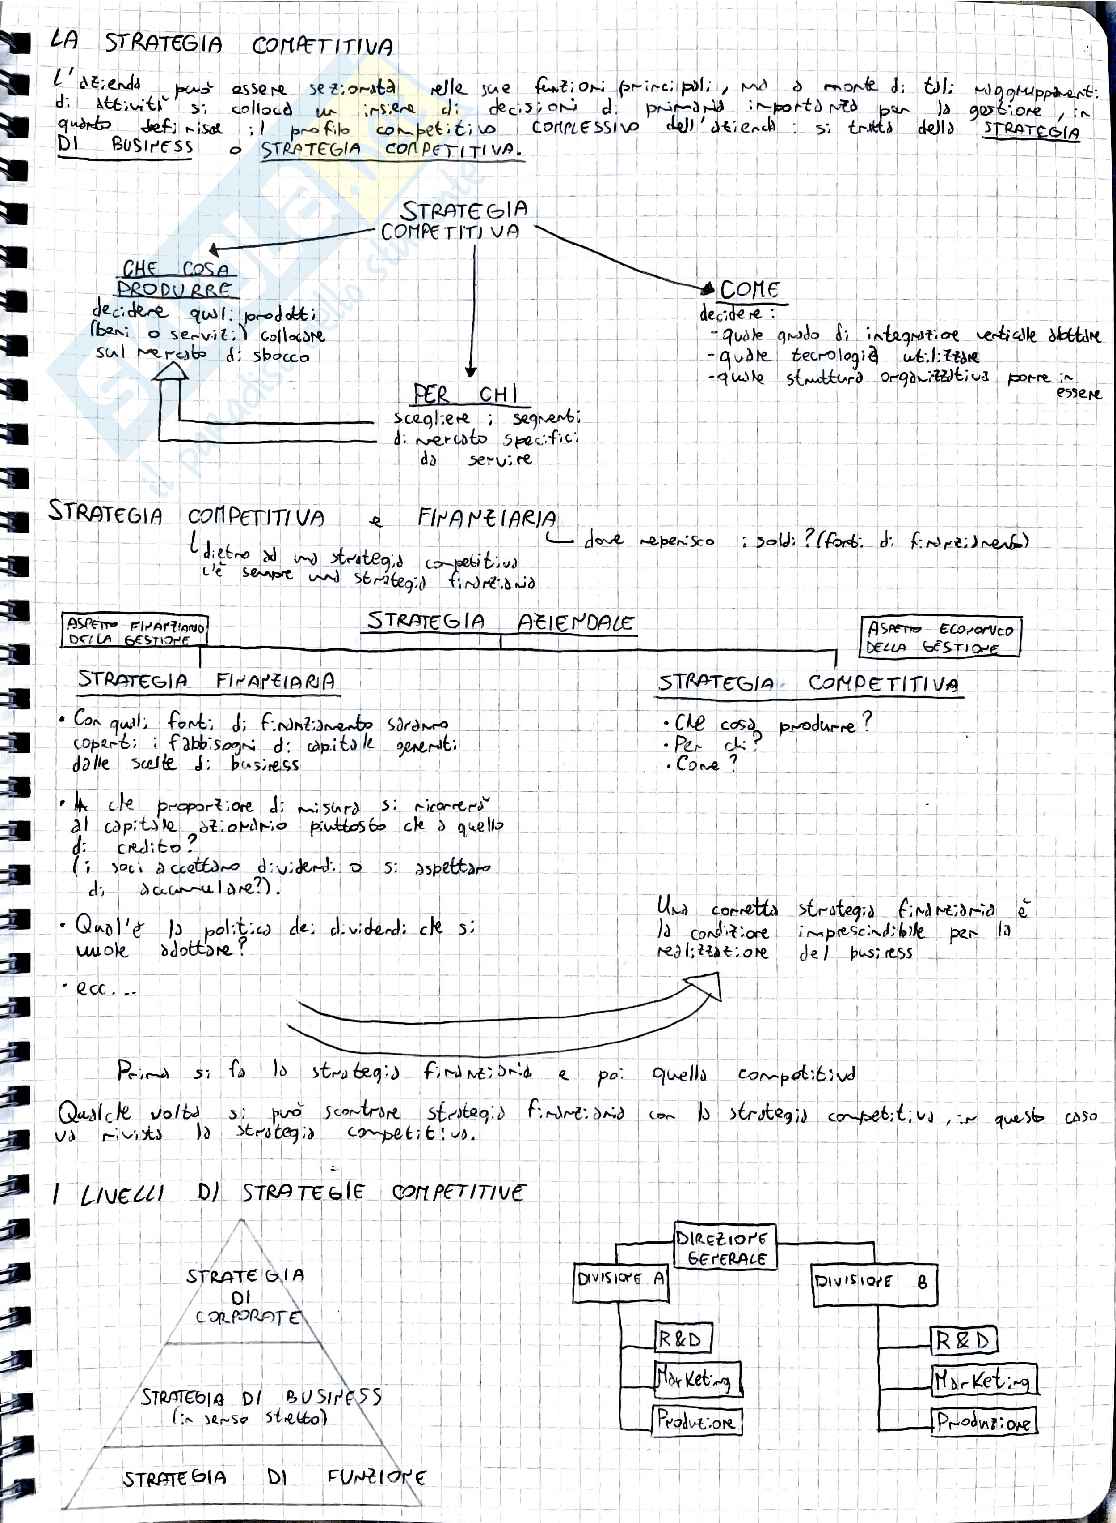 LA STRATEGIA COMPETITIVA
L'azienda può essere sezionata nelle sue funzioni principali, ma a monte di tali raggruppamenti
di attività si colloca un insieme di decisioni di primaria importanza per la gestione, in
quanto definisce il profilo competitivo COMPLESSIVO dell'azienda: si tratta della STRATEGIA
DI BUSINESS o STRATEGIA COMPETITIVA.
STRATEGIA
COMPETITIVA
CHE COSA
PRODURRE
decidere quali prodotti
(beni o servizi) collocare
sul mercato di sbocco
COME
decidere:
- quale grado di integrazione verticale adottare
- quale tecnologia utilizzare
- quale struttura organizzativa porre in
essere
PER CHI
scegliere i segmenti
di mercato specifici
da servire
STRATEGIA COMPETITIVA e FINANZIARIA
dove reperisco i soldi? (fonti di finanziamento)
dietro ad una strategia competitiva
c'è sempre una strategia finanziaria
STRATEGIA AZIENDALE
ASPETTO FINANZIARIO
DELLA GESTIONE
ASPETTO ECONOMICO
DELLA GESTIONE
STRATEGIA FINANZIARIA
• Con quali fonti di finanziamento saranno
coperti i fabbisogni di capitale generati
dalle scelte di business
• A che proporzione di misura si ricorrerà
al capitale azionario piuttosto che a quello
di credito?
(i soci accettano dividendi o si aspettano
di accumulare?).
• Qual'è la politica dei dividendi che si
vuole adottare?
• ecc...
STRATEGIA COMPETITIVA
• Che cosa produrre?
• Per chi?
• Come?
Una corretta strategia finanziaria è
la condizione imprescindibile per la
realizzazione del business
Prima si fa la strategia finanziaria e poi quella competitiva
Qualche volta si può scontrare strategia finanziaria con la strategia competitiva, in questo caso
va rivista la strategia competitiva.
I LIVELLI DI STRATEGIE COMPETITIVE
STRATEGIA
DI
CORPORATE
STRATEGIA DI BUSINESS
(in senso stretto)
STRATEGIA DI FUNZIONE
DIREZIONE
GENERALE
DIVISIONE A
DIVISIONE B
R&D
Marketing
Produzione
R&D
Marketing
Produzione